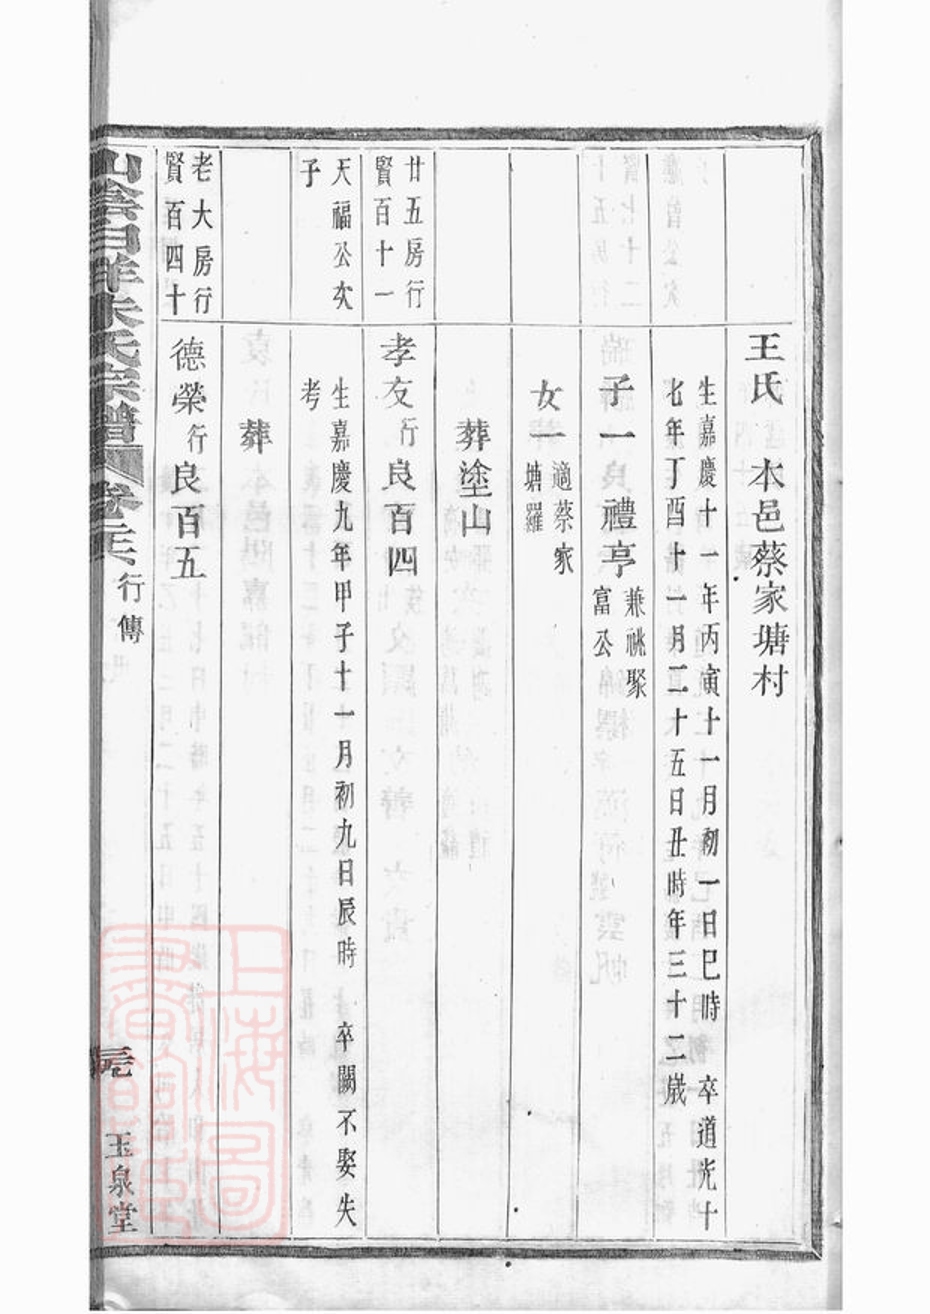 王氏 本邑蔡家塘村
生嘉慶十一年丙寅十一月初一日巳時 卒道光十
七年丁酉十一月二十五日丑時年三十二歲
子一禮亨
兼祧聚
富公
女一
適蔡家
塘羅
葬塗山
廿五房行
賢百十一
孝友行良百四
天福公次
子
生嘉慶九年甲子十一月初九日辰時 卒闕不娶失
考
葬
老大房行
賢百四十
德榮行良百五
山陰白洋朱氏宗譜
行傳
玉泉堂